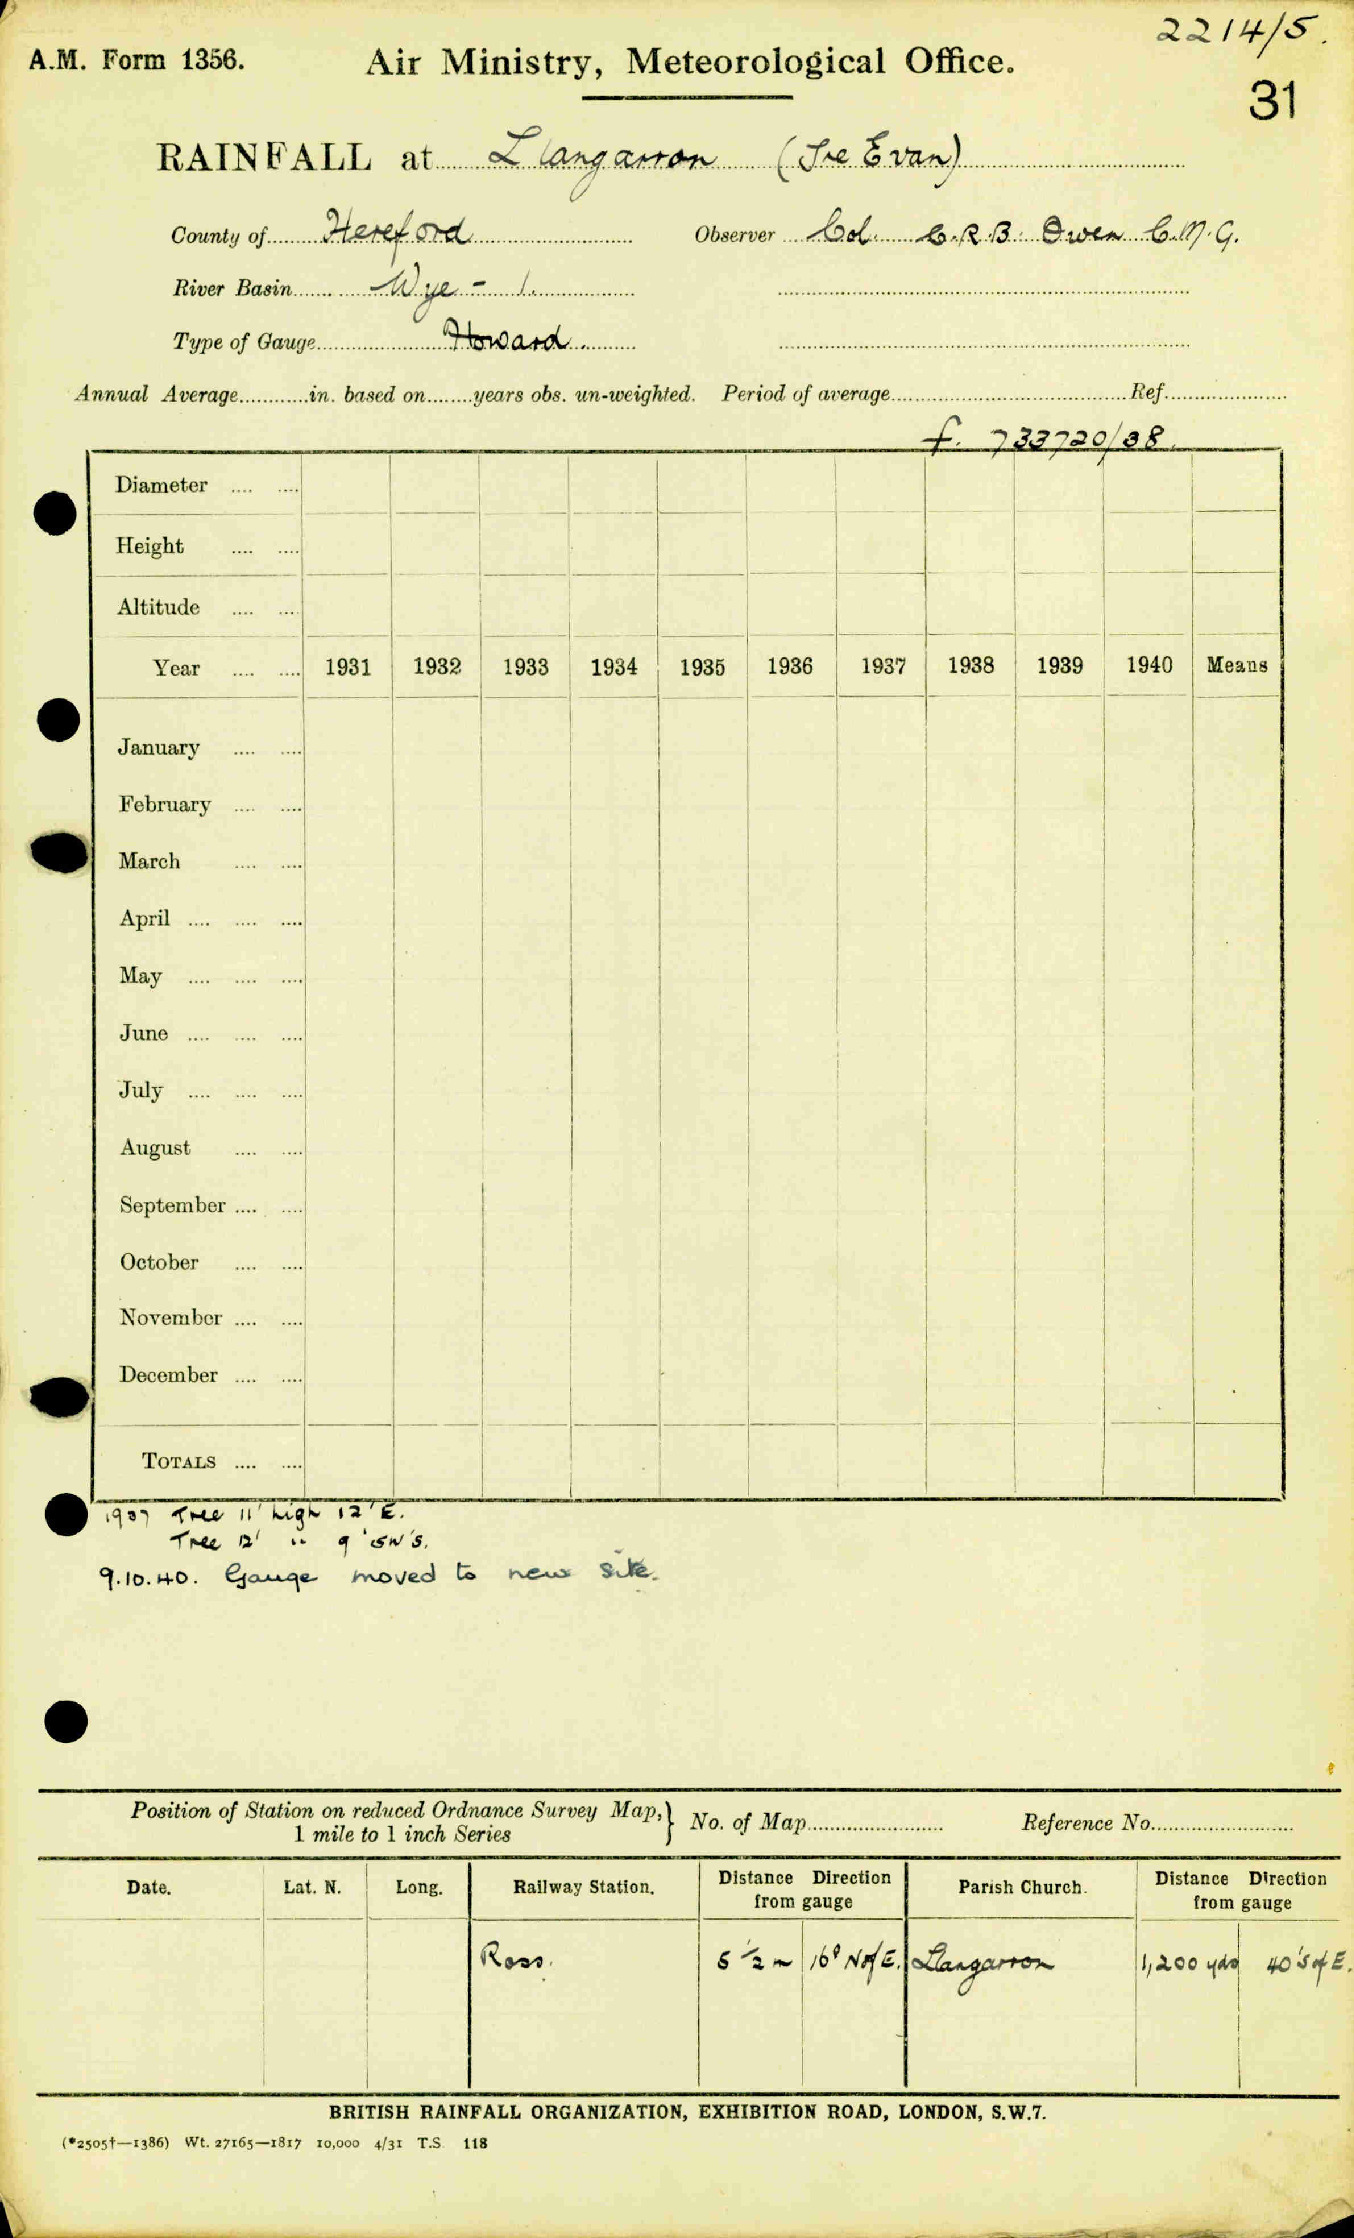 2214/5.
A.M. Form 1356. Air Ministry, Meteorological Office.
31
RAINFALL at Llangarron (Tre Evan)
County of Hereford Observer Col. C.R.B. Owen C.M.G.
River Basin Wye - 1.
Type of Gauge Howard.
Annual Average............in. based on........years obs. un-weighted. Period of average........................................Ref.....................
f. 733720/38.
Diameter .... ....
Height .... ....
Altitude .... ....
Year .... .... 1931 1932 1933 1934 1935 1936 1937 1938 1939 1940 Means
January .... ....
February .... ....
March .... ....
April .... .... ....
May .... .... ....
June .... .... ....
July .... .... ....
August .... ....
September .... ....
October .... ....
November .... ....
December .... ....
TOTALS .... ....
1937 Tree 11' high 12' E.
Tree 12' " 9'
9.10.40. Gauge moved to new site.
Position of Station on reduced Ordnance Survey Map, } No. of Map........................ Reference No.........................
1 mile to 1 inch Series
Date. Lat. N. Long. Railway Station. Distance Direction from gauge Parish Church. Distance Direction from gauge
Ross. 5 1/2 m 16° N of E. Llangarron 1,200 yds 40° S of E.
BRITISH RAINFALL ORGANIZATION, EXHIBITION ROAD, LONDON, S.W.7.
(*2505†—1386) Wt. 27165—1817 10,000 4/31 T.S. 118